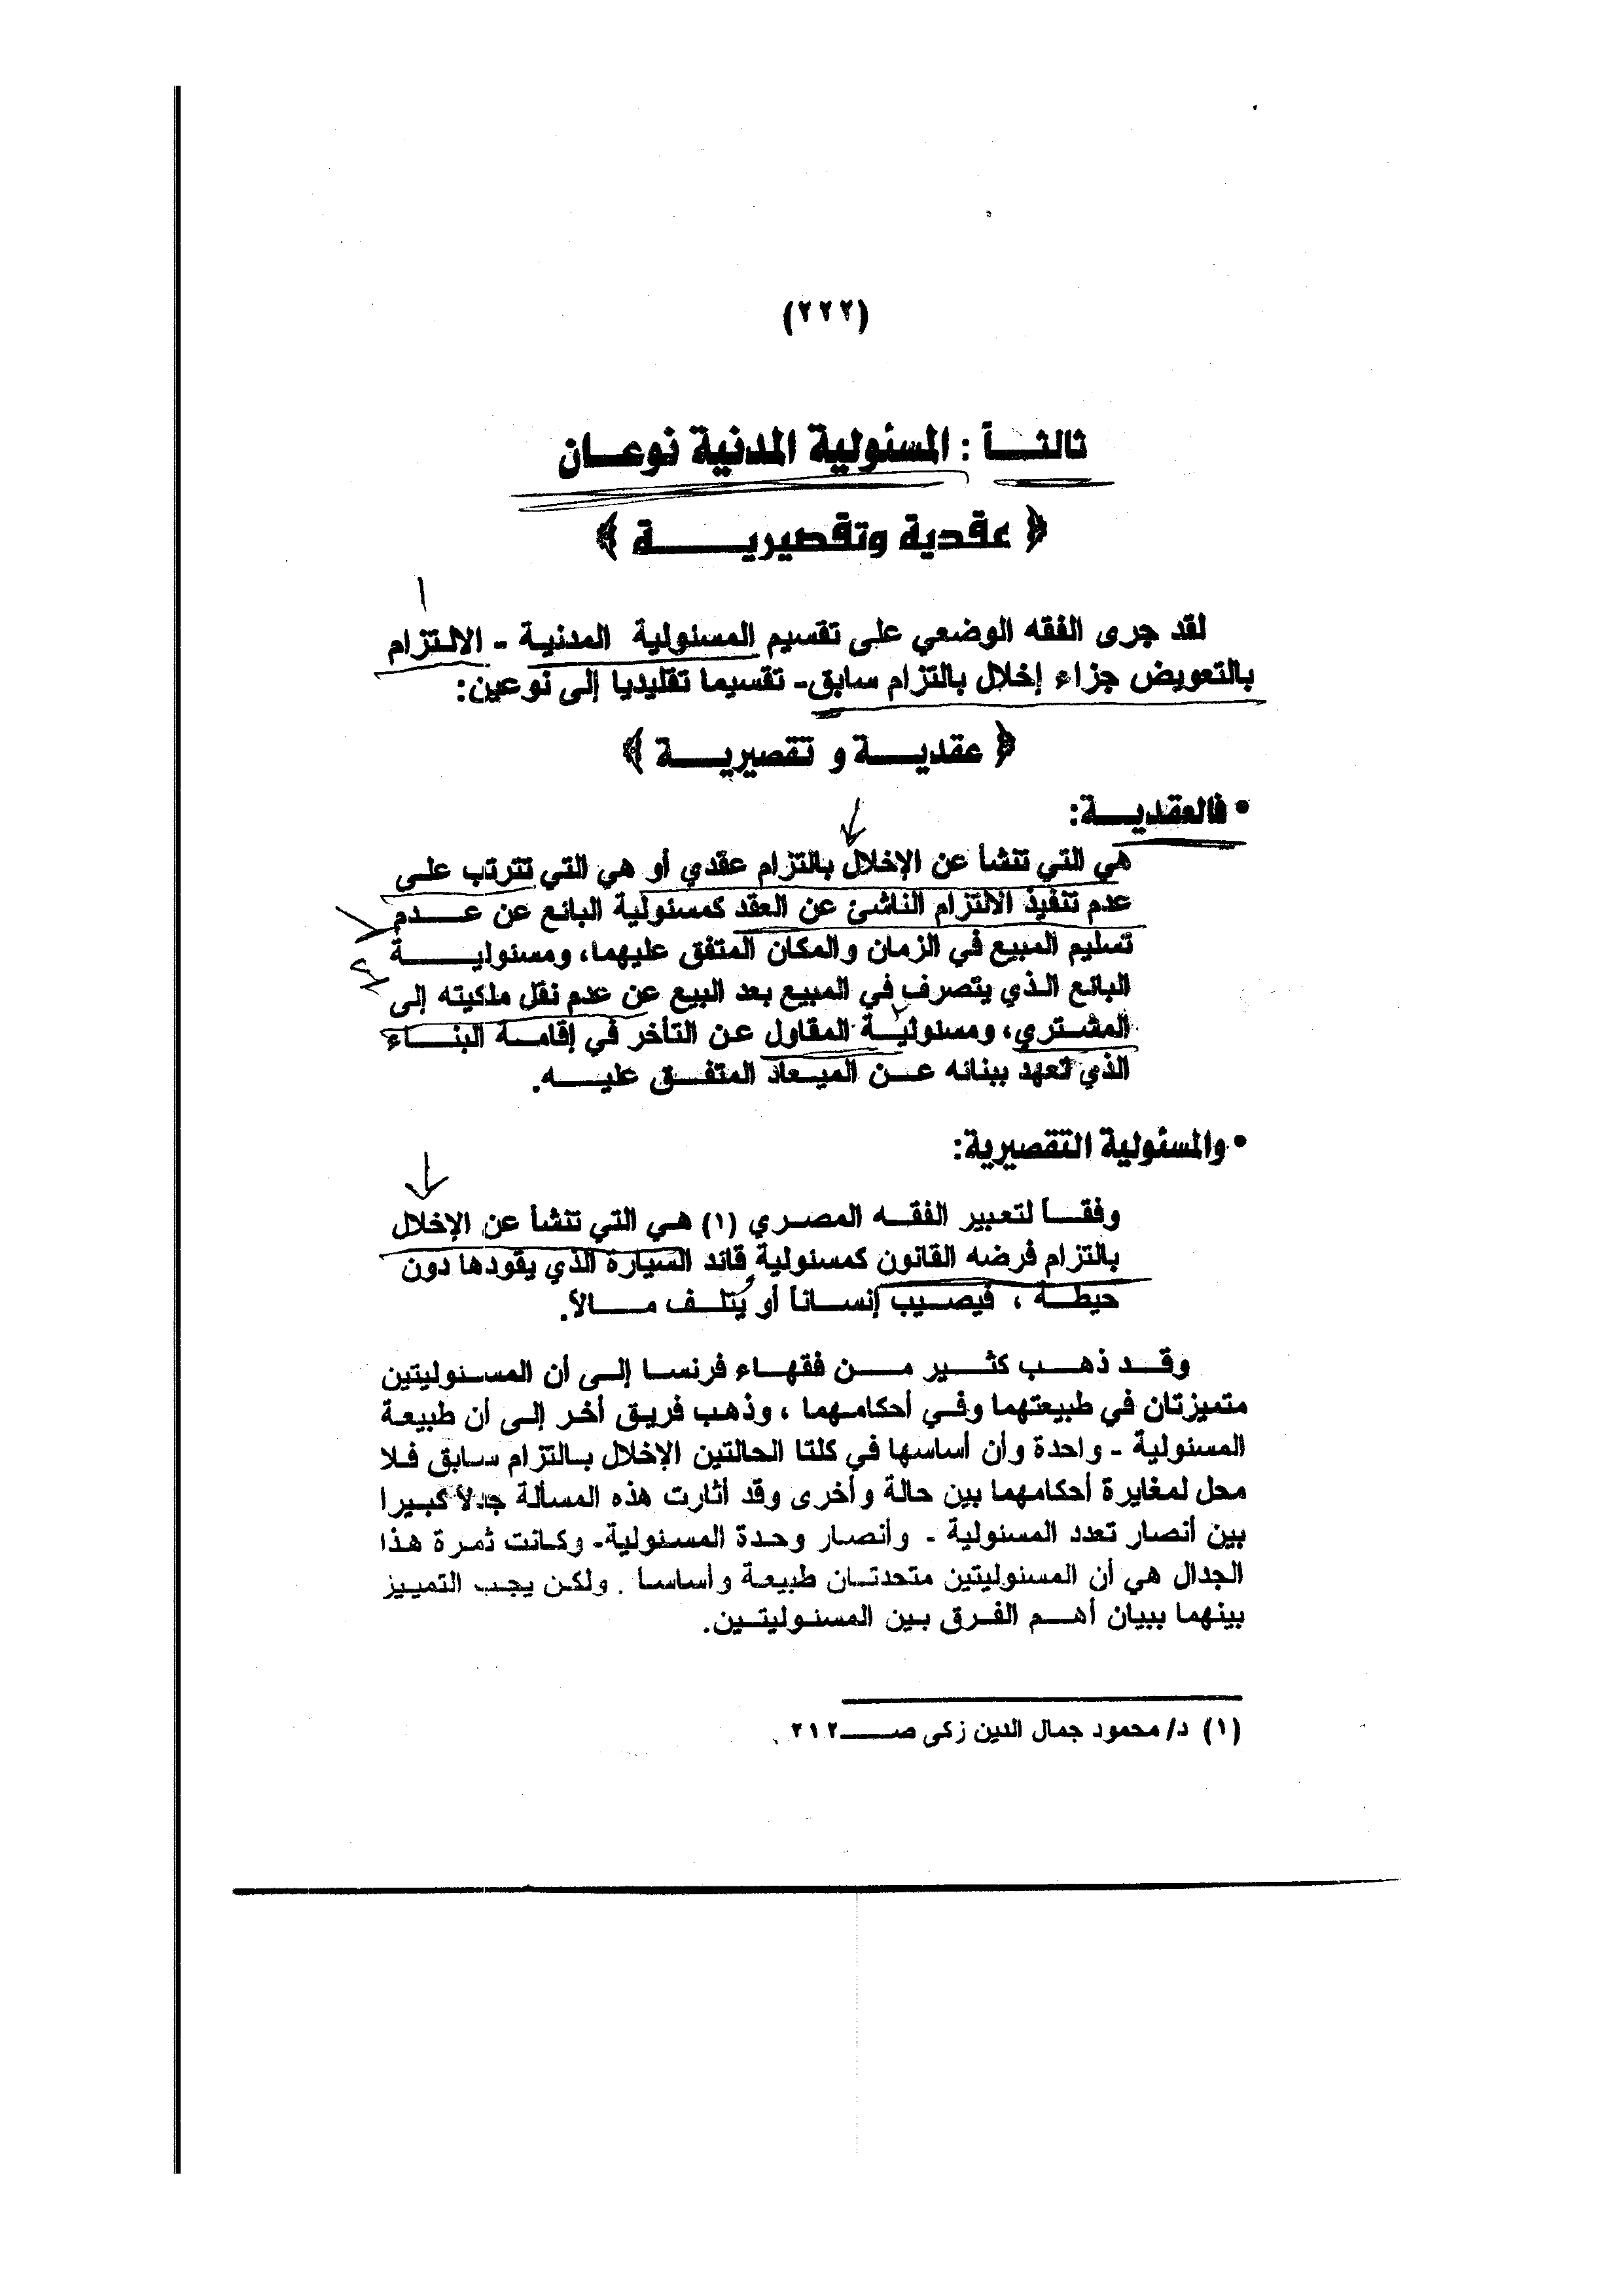 (٢٢٢)
ثالثاً : المسئولية المدنية نوعان
﴿ عقدية وتقصيرية ﴾
لقد جرى الفقه الوضعي على تقسيم المسئولية المدنية - الالتزام
بالتعويض جزاء إخلال بالتزام سابق- تقسيما تقليديا إلى نوعين:
﴿ عقدية و تقصيرية ﴾
• فالعقدية:
هي التي تنشأ عن الإخلال بالتزام عقدي أو هي التي تترتب على
عدم تنفيذ الالتزام الناشئ عن العقد كمسئولية البائع عن عدم
تسليم المبيع في الزمان والمكان المتفق عليهما، ومسئولية
البائع الذي يتصرف في المبيع بعد البيع عن عدم نقل ملكيته إلى
المشتري، ومسئولية المقاول عن التأخر في إقامة البناء
الذي تعهد ببنائه عن الميعاد المتفق عليه.
• والمسئولية التقصيرية:
وفقاً لتعبير الفقه المصري (١) هي التي تنشأ عن الإخلال
بالتزام فرضه القانون كمسئولية قائد السيارة الذي يقودها دون
حيطة ، فيصيب إنساناً أو يتلف مالاً.
وقد ذهب كثير من فقهاء فرنسا إلى أن المسئوليتين
متميزتان في طبيعتهما وفي أحكامهما ، وذهب فريق أخر إلى أن طبيعة
المسئولية - واحدة وأن أساسها في كلتا الحالتين الإخلال بالتزام سابق فلا
محل لمغايرة أحكامهما بين حالة وأخرى وقد أثارت هذه المسألة جدلاً كبيرا
بين أنصار تعدد المسئولية - وأنصار وحدة المسئولية- وكانت ثمرة هذا
الجدال هي أن المسئوليتين متحدتان طبيعة وأساسا . ولكن يجب التمييز
بينهما ببيان أهم الفرق بين المسئوليتين.
(١) د/ محمود جمال الدين زكى صـ٢١٢ .